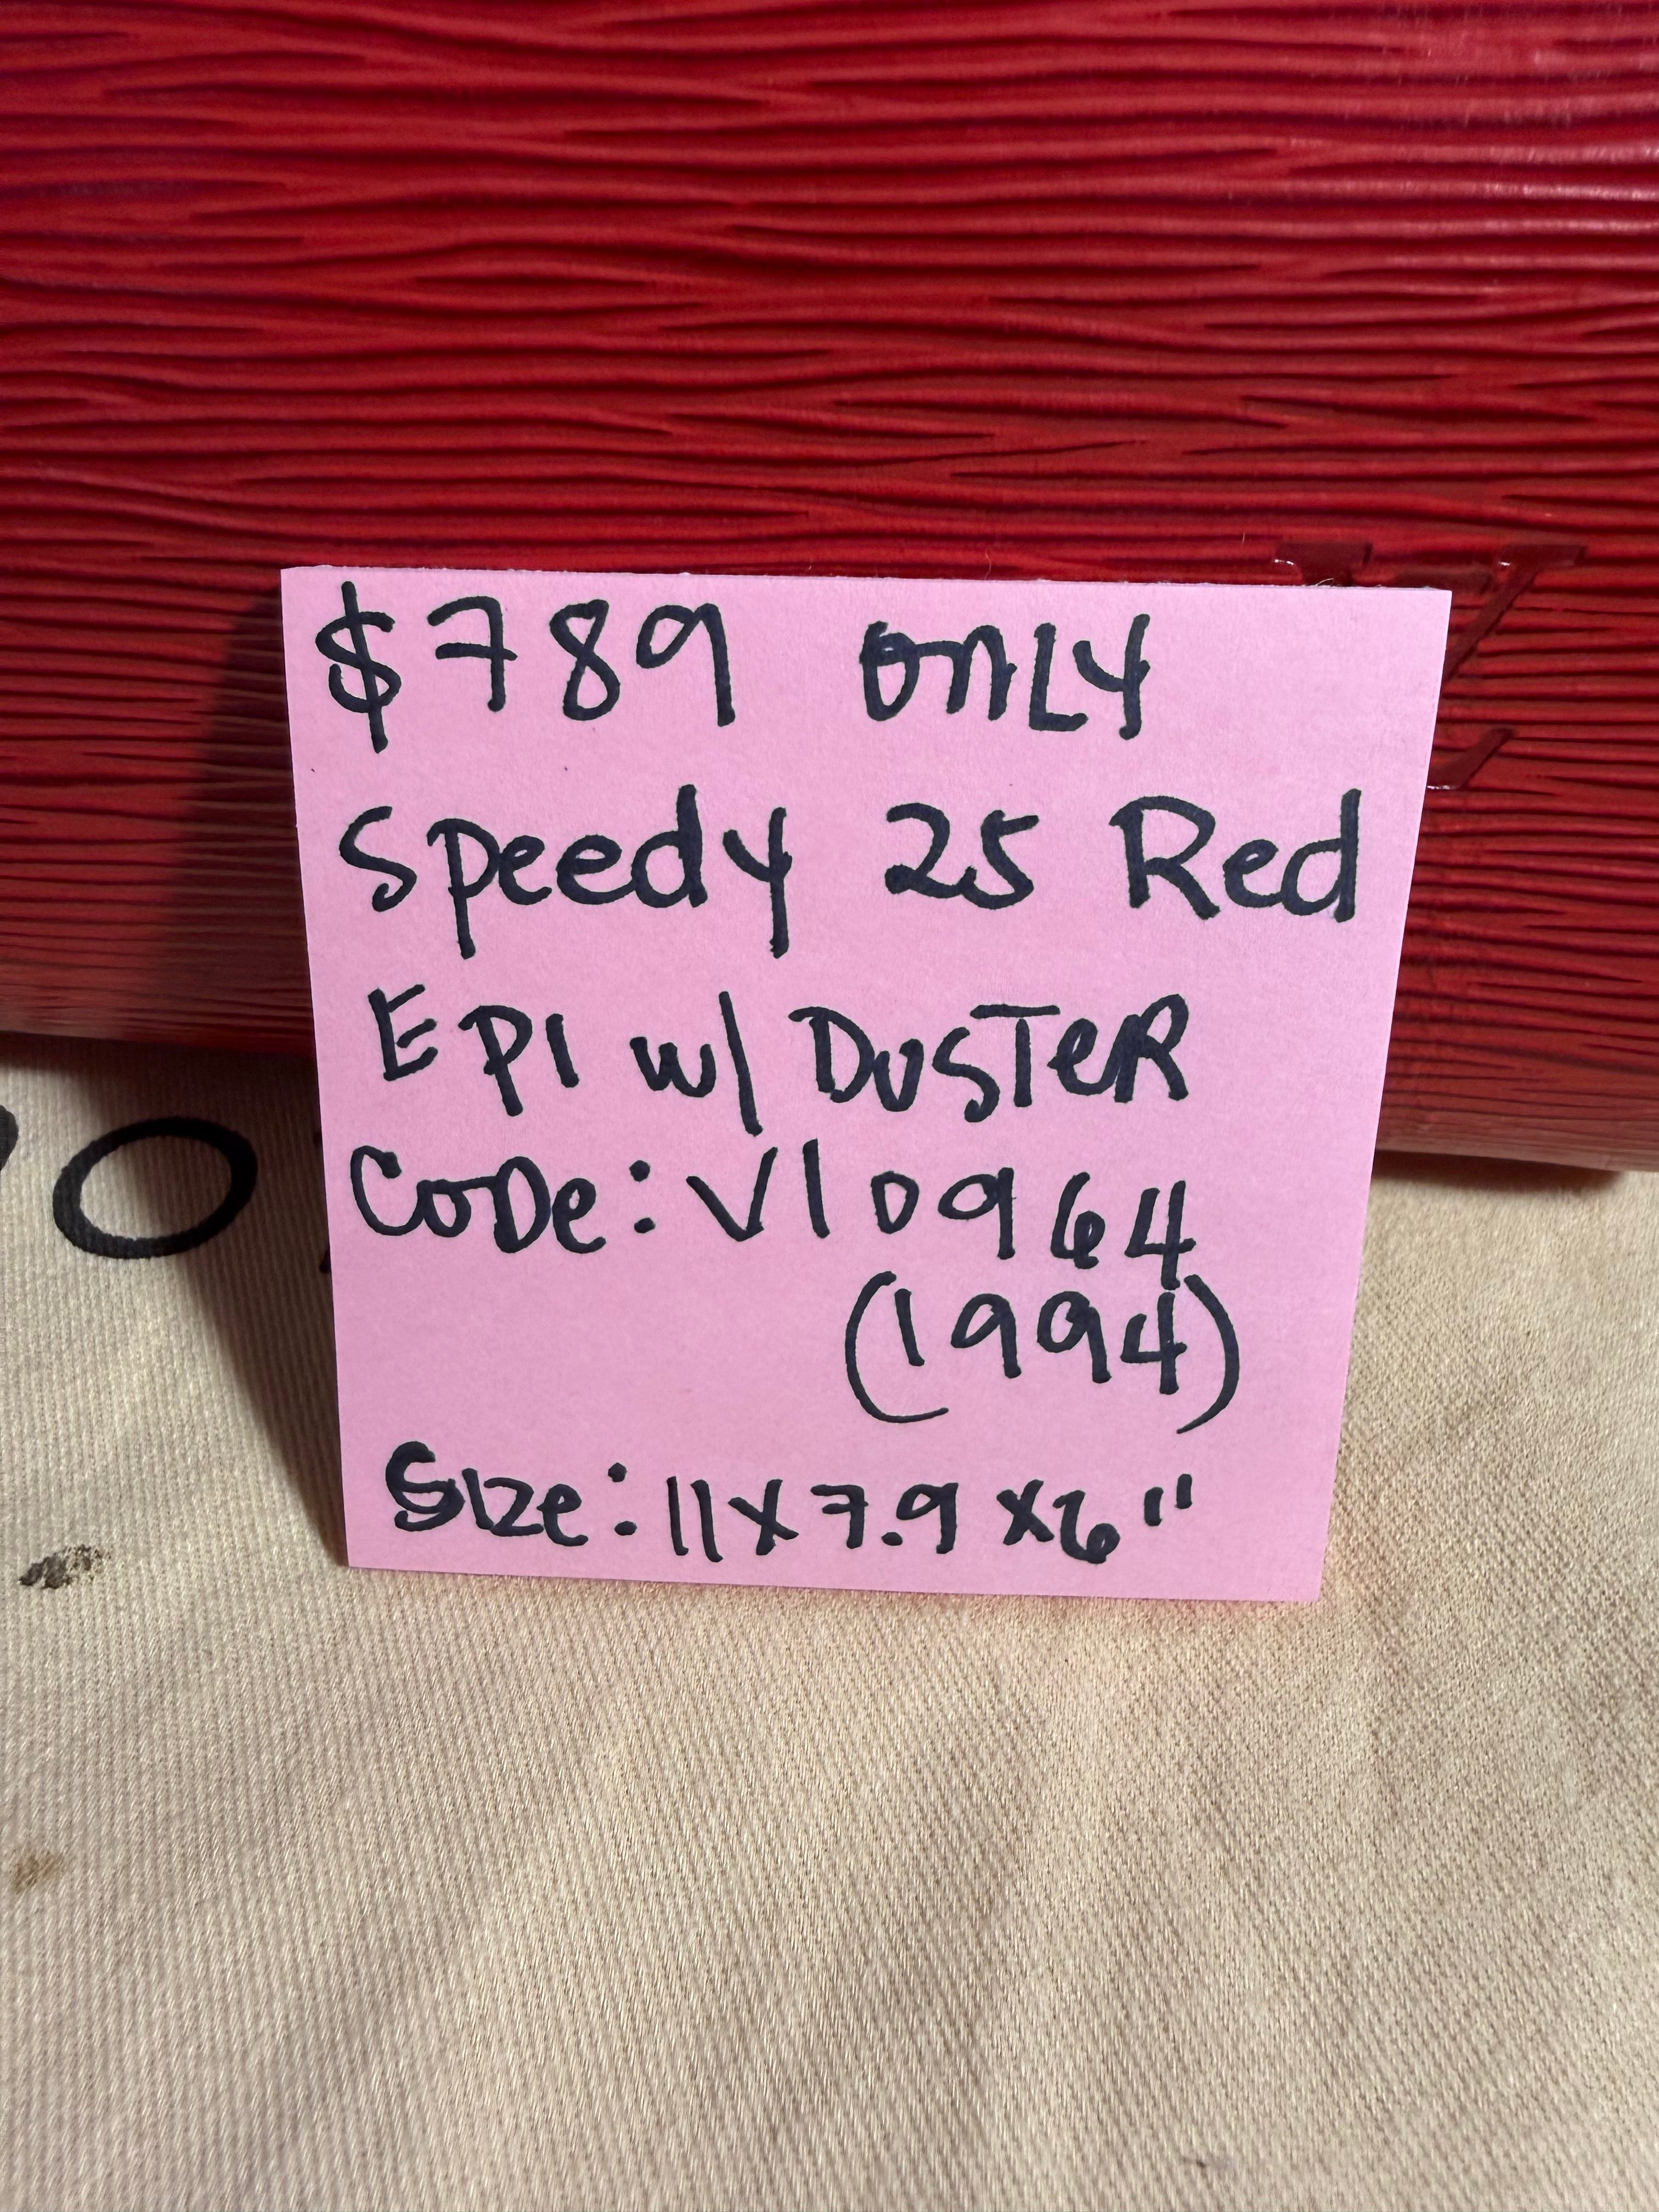 $789 ONLY
Speedy 25 Red
EPI w/ DUSTER
CODE: VI0964
(1994)
Size: 11x7.9x6"